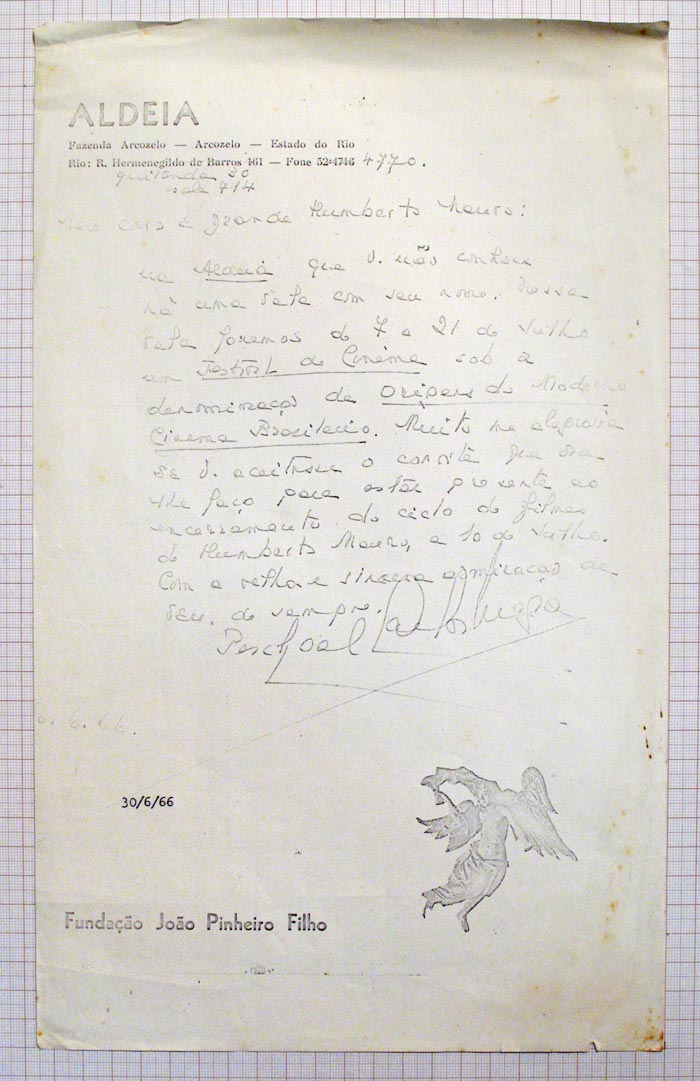 ALDEIA
Fazenda Arcozelo — Arcozelo — Estado do Rio
Rio: R. Hermenegildo de Barros 161 — Fone 52-4746 4770.
quitanda 30
sala 714
Meu caro e grande Humberto Mauro:
na Aldeia que V. não conhece
há uma sala com seu nome. Nessa
sala faremos de 7 a 21 de Julho
um Festival de Cinema sob a
denominação de Origens do Moderno
Cinema Brasileiro. Muito me alegraria
se V. aceitasse o convite que ora
lhe faço para estar presente ao
encerramento do ciclo de filmes
de Humberto Mauro, a 10 de Julho.
Com a velha e sincera admiração de
seu, de sempre.
Paschoal Carlos Magno
0.6.66.
30/6/66
Fundação João Pinheiro Filho